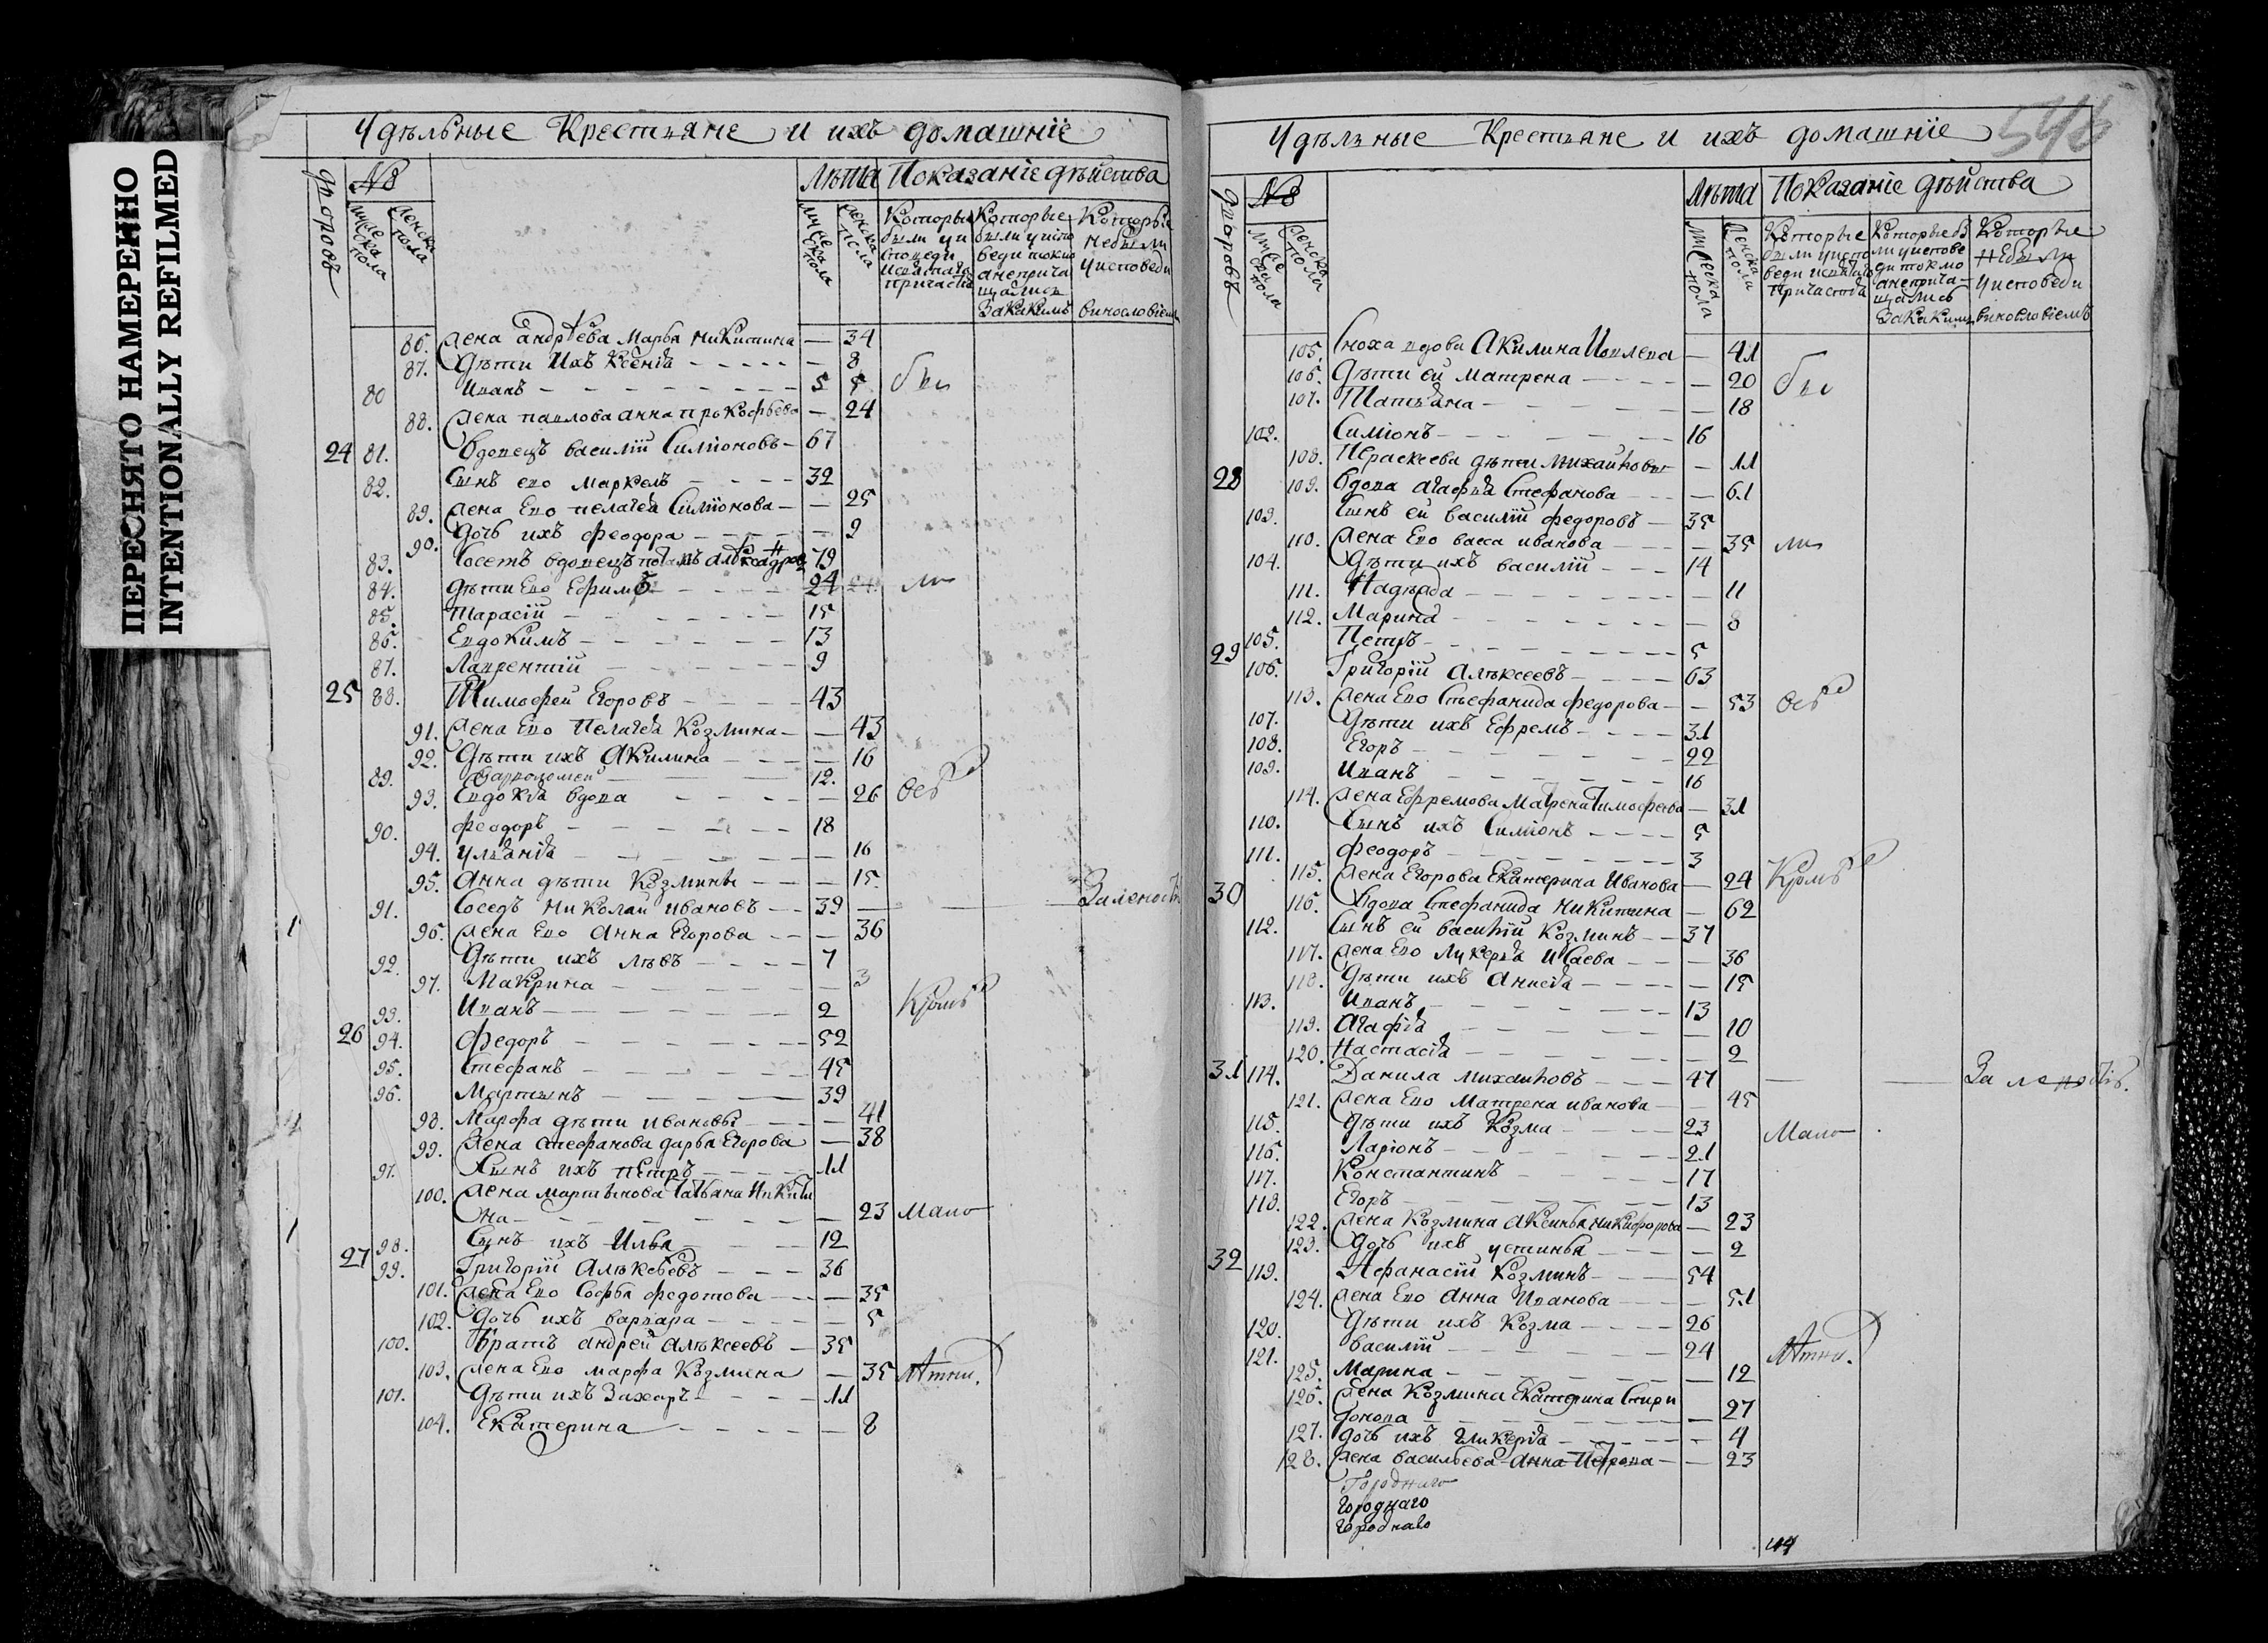 ПЕРЕСНЯТО НАМЕРЕННО
INTENTIONALLY REFILMED
Удѣльные Крестьяне и ихъ домашнїе
дворовъ
№
Лѣта Показанїе дѣйства
муже ска пола
женска пола
муже ска пола
женска пола
Которые были у исповеди и святаго причастїя
Которые были у исповеди токмо а непричащались
Которые небыли у исповеди
За какимъ винословїемъ
86. Жена андрѣева Марья Никитина — 34
87. Дѣти Ихъ Ксенїя — 8
80 Иванъ 5 5 бы
88. Жена павлова анна прокофьева — 24
24 81. Вдовецъ василїй Симїоновъ 67
82. Сынъ его Маркелъ 32
89. Жена Его пелагея Симїонова — 25
90. Дочь ихъ феодора — 2
83. Соседъ вдовецъ 79
84. Дѣти Его Ефимъ 24 24 ли
85. Тарасїй 15
86. Евдокимъ 13
87. Лаврентїй 9
25 88. Тимофей Егоровъ 43
91. Жена Его Пелагея Козмина — 43
92. Дѣти ихъ Акилина — 16
89. Варфоломей 12.
93. Евдокїя вдова — 26 всѣ
90. феодоръ 18
94. Ульянїя — 16
95. Анна дѣти Козмины — 15.
91. Соседъ Николай ивановъ 39 За леностїю
96. Жена Его Анна Егорова — 36
92. Дѣти ихъ Левъ 7
97. Макрина — 3
93. Иванъ 2 Кромѣ
26 94. Федоръ 52
95. Стефанъ 45
96. Мартынъ 39
98. Марфа дѣти ивановы — 41
99. Жена стефанова дарья Егорова — 38
97. Сынъ ихъ петръ 11
100. Жена мартынова Татьана Никити
на — 23 Мало
98. Сынъ ихъ Илья 12
27 99. Григорїй Алѣксѣевъ 36
101. Жена Его Софья федотова — 35
102. Дочь ихъ варвара — 5
100. Братъ андрей Алѣксеевъ 35
103. Жена Его марфа Козмина — 35
101. Дѣти ихъ Захаръ 11
104. Екатерина — 8
Удѣлные Крестьяне и ихъ домашнїе
дворовъ
№
Лѣта Показанїе дѣйства
муже ска пола
женска пола
муже ска пола
женска пола
Которые были у исповеди и святаго причастїя
Которые были у исповеди токмо а непричащались
Которые Небыли у исповеди
За какимъ винословїемъ
105. Сноха вдова Акилина Иовлева — 41
106. Дѣти ей Матрена — 20 бы
107. Татьяна — 18
102. Симїонъ 16
108. Параскева дѣти михаиловы — 11
28 109. Вдова агафїя Стефанова — 61
103. Сынъ ей василїй федоровъ 35
110. Жена Его васса иванова — 35 ли
104. Дѣти ихъ василїй 14
111. Надѣжда — 11
112. Марина — 8
105. Петръ 5
29 106. Григорїй Алѣксеевъ 63
113. Жена Его Стефанида федорова — 53 всѣ
107. Дѣти ихъ Ефремъ 31
108. Егоръ 22
109. Иванъ 16
114. Жена Ефремова Матрена Тимофеева — 31
110. Сынъ ихъ Симїонъ 5
111. Феодоръ 3
115. Жена Егорова Екатерина Иванова — 24 Кромѣ
30 116. Вдова Стефанида Никитина — 62
112. Сынъ ей василїй Козминъ 37
117. Жена Его Лукерья Исаева — 36
118. Дѣти ихъ Анисья — 15
113. Иванъ 13
119. Агафїя — 10
120. Настасїя — 2
31 114. Данила михаиловъ 47 За леностїю.
121. Жена Его Матрена иванова — 45
115. Дѣти ихъ Козма 23 Мало
116. Ларїонъ 21
117. Константинъ 17
118. Егоръ 13
122. Жена Козмина Аксинья Никифорова — 23
123. Дочь ихъ устинья — 2
32 119. Афанасїй Козминъ 54
124. Жена Его Анна Иванова — 51
120. Дѣти ихъ Козма 26
121. Василїй 24
125. Марина — 12
126. Жена Козмина Екатерина Спири
донова — 27
127. Дочь ихъ Гликерїя — 4
128. Жена васильева Анна Петрова — 23
Городнаго
Городнаго
Городнаго